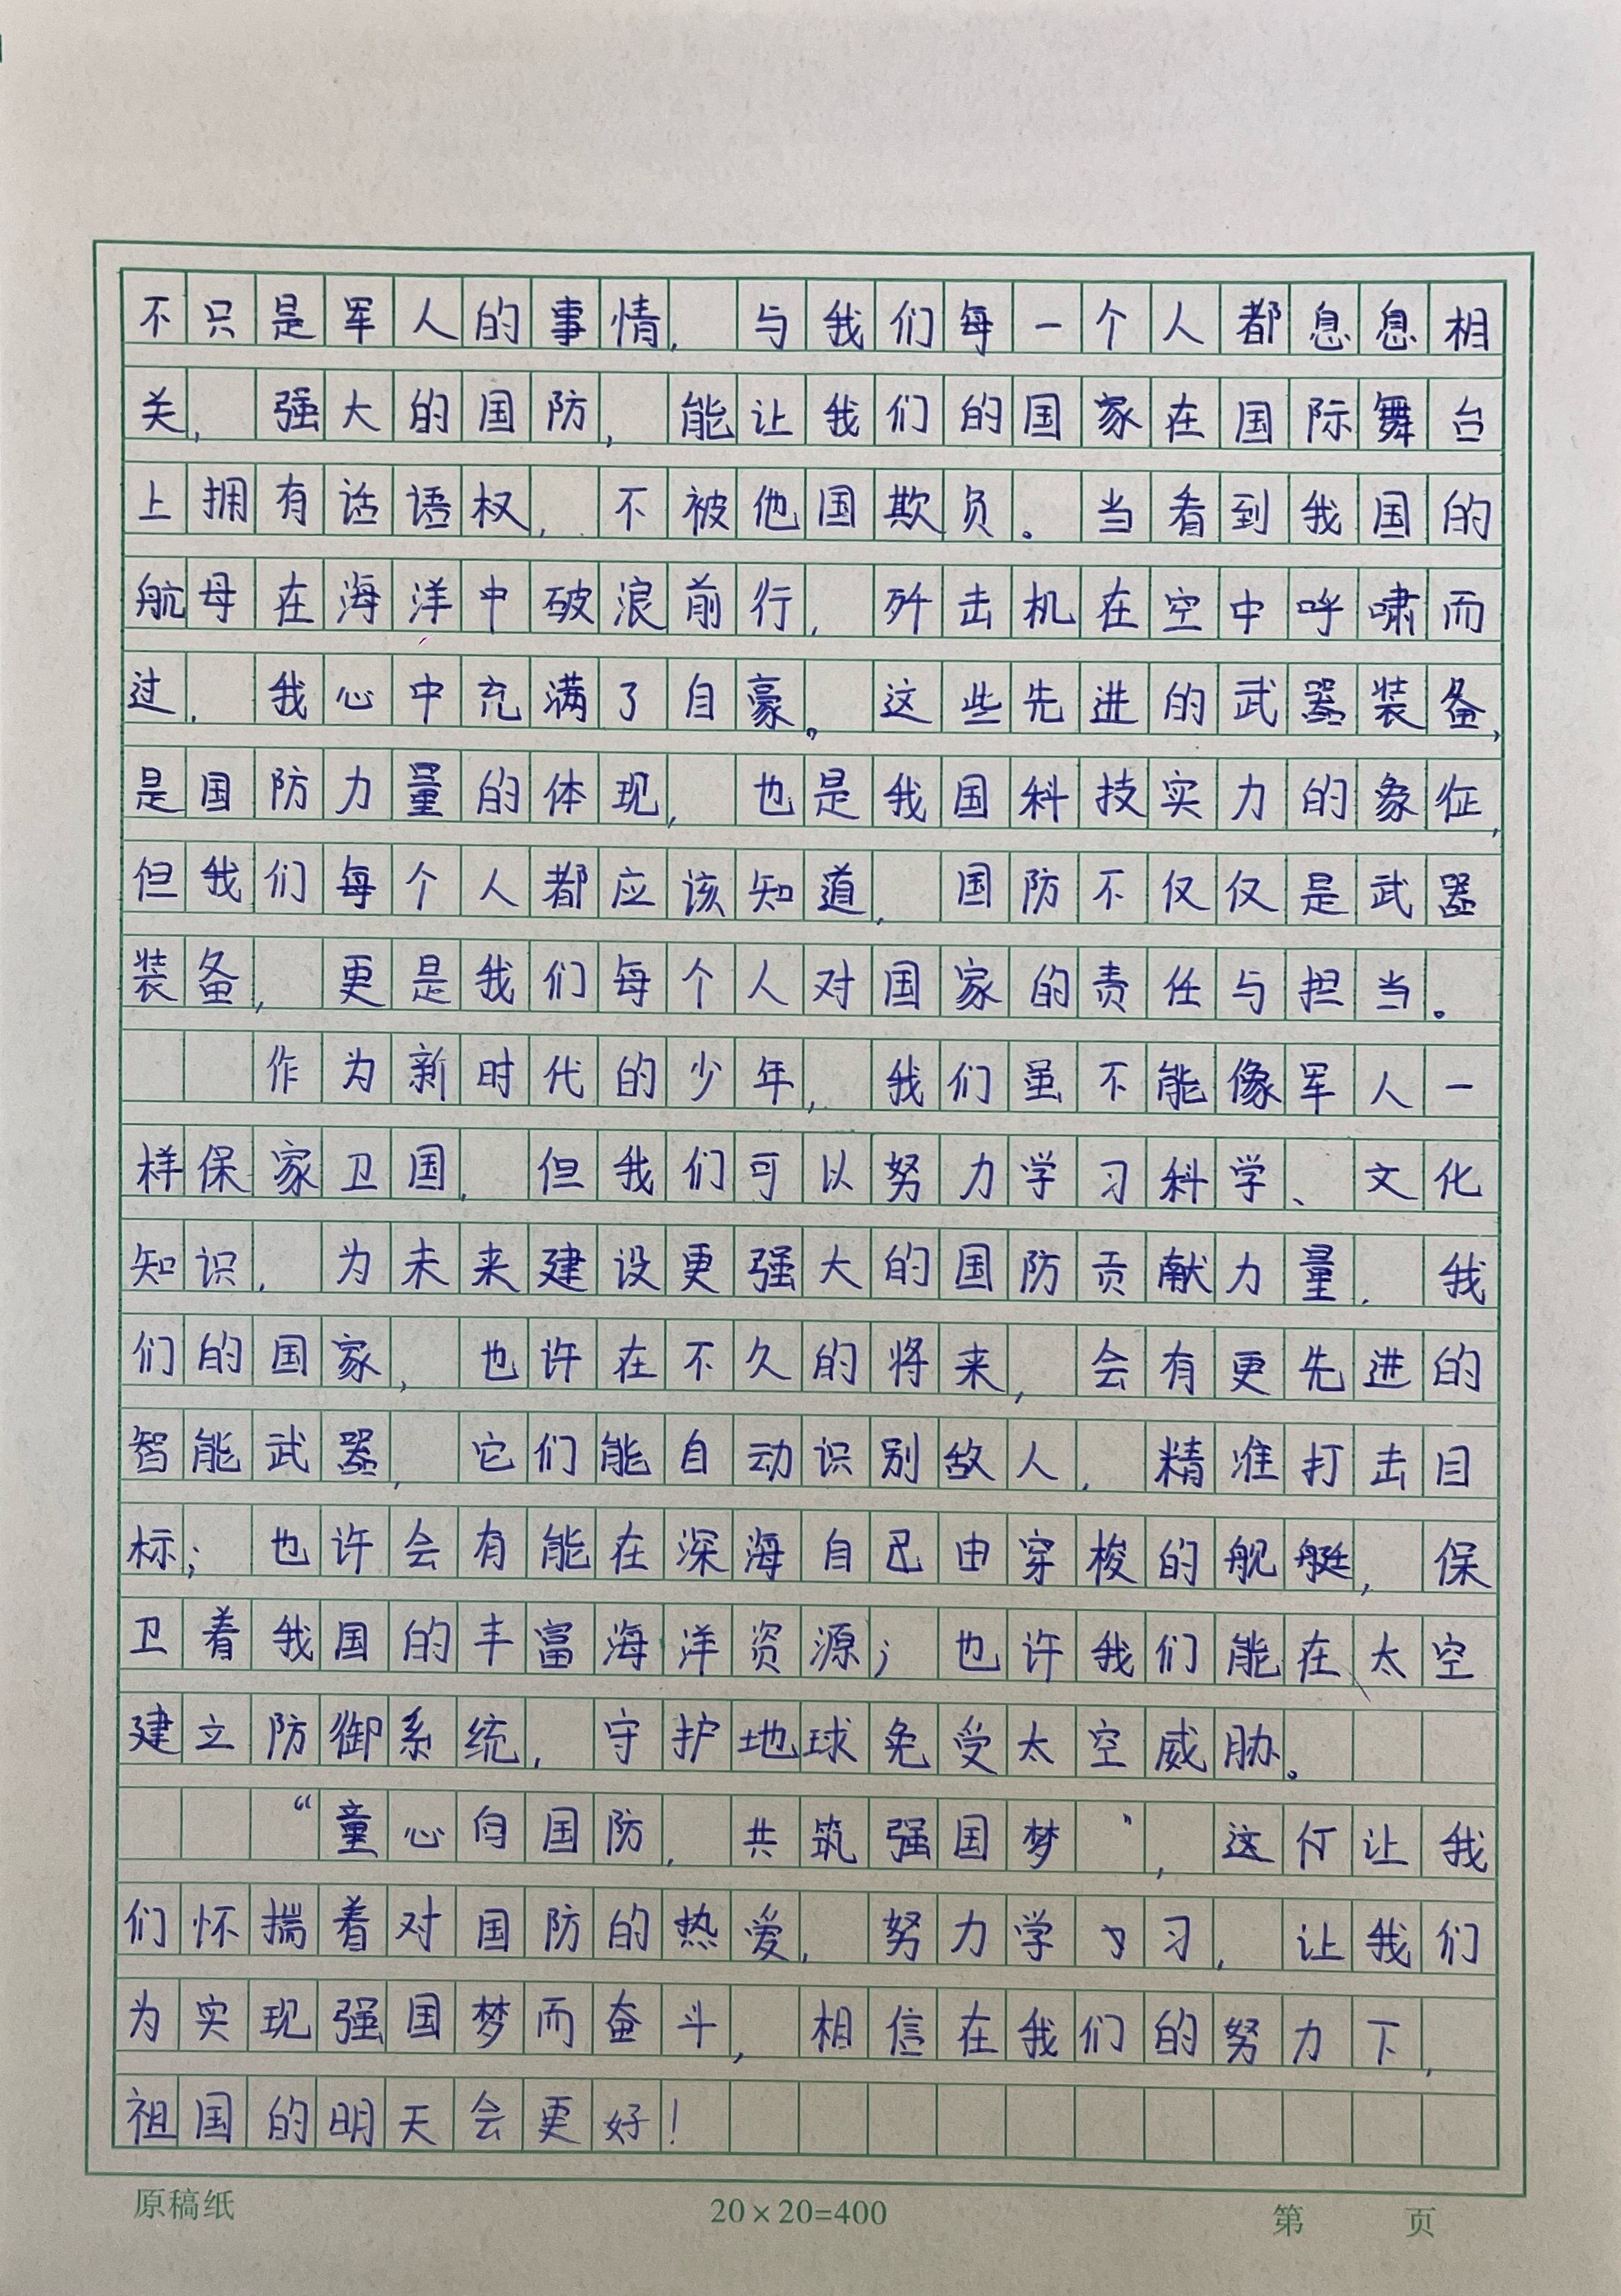 不只是军人的事情，与我们每一个人都息息相
关，强大的国防，能让我们的国家在国际舞台
上拥有话语权，不被他国欺负。当看到我国的
航母在海洋中破浪前行，歼击机在空中呼啸而
过，我心中充满了自豪。这些先进的武器装备，
是国防力量的体现，也是我国科技实力的象征，
但我们每个人都应该知道，国防不仅仅是武器
装备，更是我们每个人对国家的责任与担当。
作为新时代的少年，我们虽不能像军人一
样保家卫国，但我们可以努力学习科学、文化
知识，为未来建设更强大的国防贡献力量，我
们的国家，也许在不久的将来，会有更先进的
智能武器，它们能自动识别敌人，精准打击目
标；也许会有能在深海自己由穿梭的舰艇，保
卫着我国的丰富海洋资源；也许我们能在太空
建立防御系统，守护地球免受太空威胁。
“童心向国防，共筑强国梦”，这让我
们怀揣着对国防的热爱，努力学习，让我们
为实现强国梦而奋斗，相信在我们的努力下，
祖国的明天会更好！
原稿纸 20×20=400 第 页